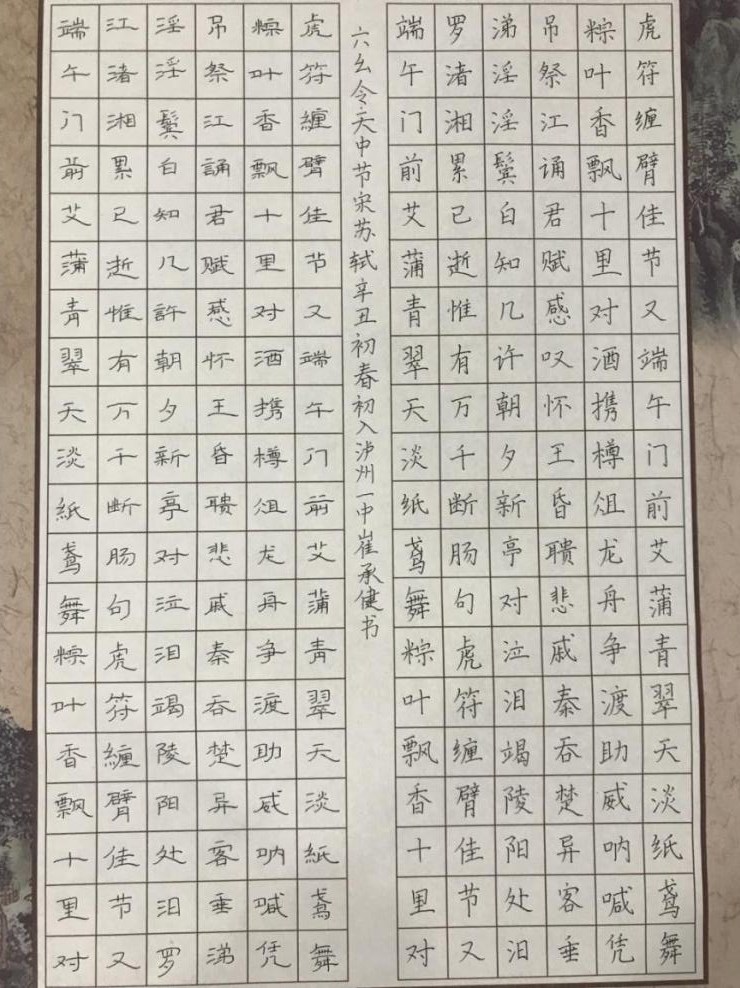 虎符缠臂佳节又端午门前艾蒲青翠天淡纸鸢舞
粽叶香飘十里对酒携樽俎龙舟争渡助威呐喊凭
吊祭江诵君赋感叹怀王昏聩悲戚秦吞楚异客垂
涕淫淫鬓白知几许朝夕新亭对泣泪竭陵阳处泪
罗渚湘累已逝惟有万千断肠句虎符缠臂佳节又
端午门前艾蒲青翠天淡纸鸢舞粽叶飘香十里对
六幺令天中节宋苏轼辛丑初春初入泸州一中崔承健书
虎符纏臂佳节又端午门前艾蒲青翠天淡紙鸢舞
粽叶香飄十里对酒携樽俎龙舟争渡助威呐喊凭
吊祭江誦君赋感怀王昏聩悲戚秦吞楚异客垂涕
淫淫鬓白知几許朝夕新亭对泣泪竭陵阳处泪罗
江渚湘累已逝惟有万千断肠句虎符纏臂佳节又
端午门前艾蒲青翠天淡紙鸢舞粽叶香飄十里对